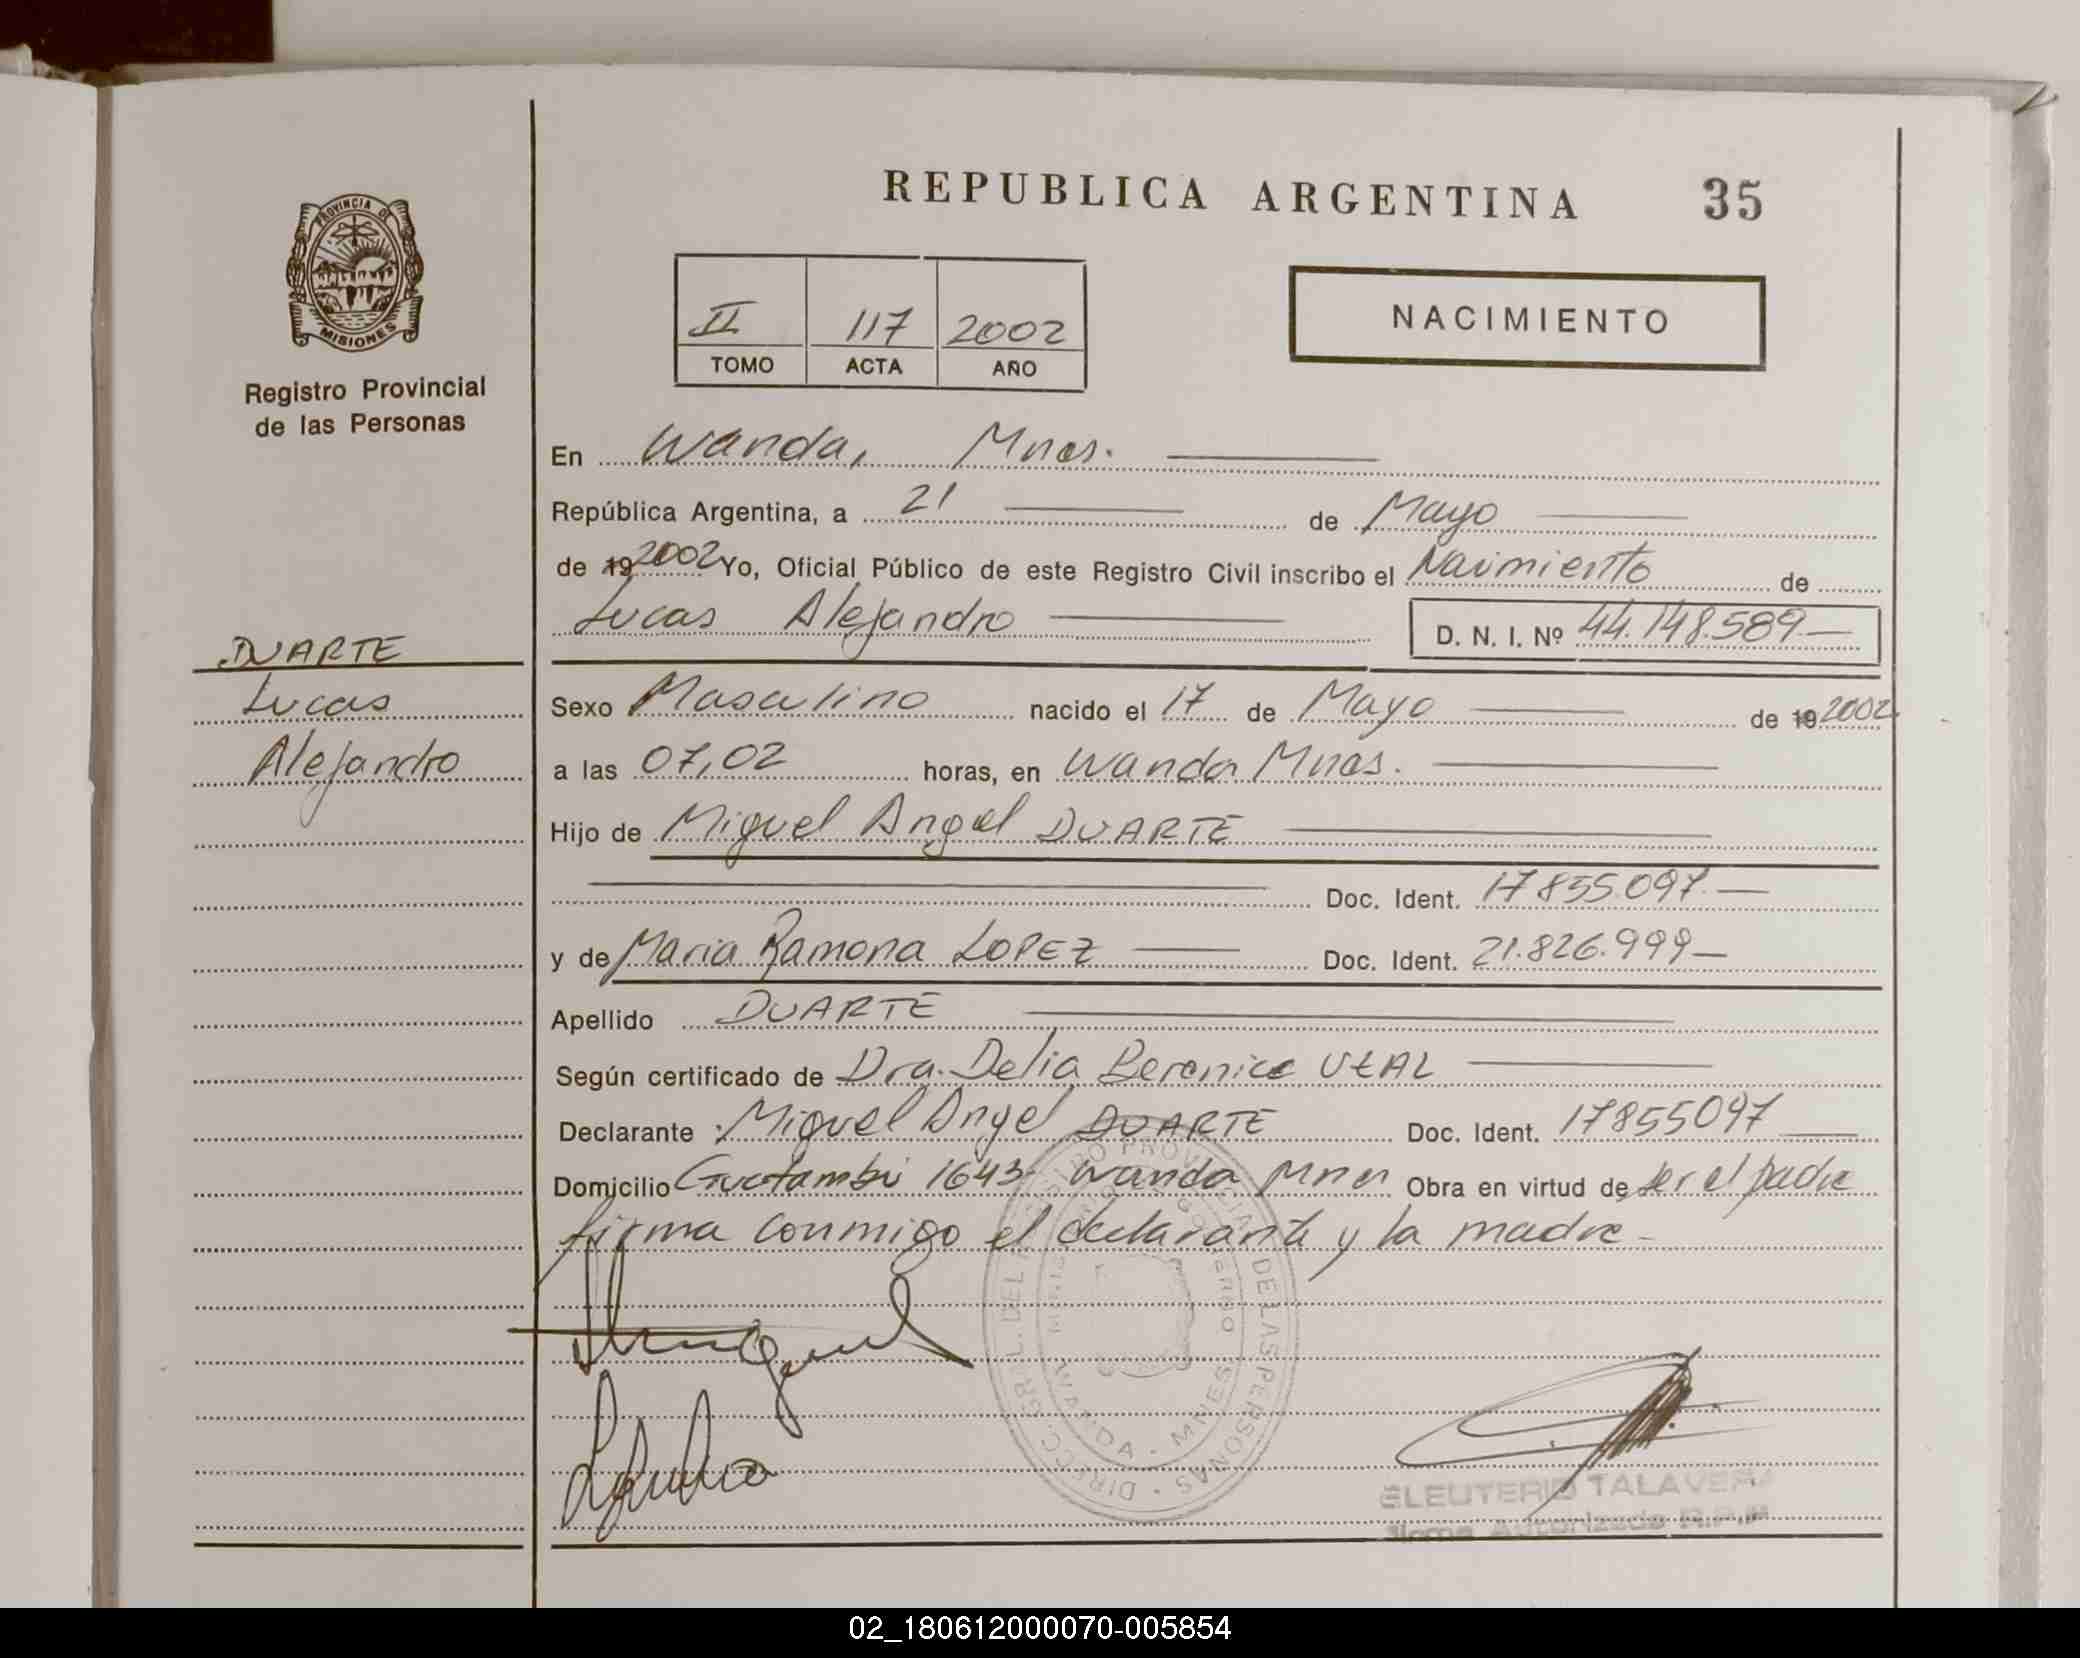 REPUBLICA ARGENTINA 35
PROVINCIA DE
MISIONES
Registro Provincial
de las Personas
II 117 2002
TOMO ACTA AÑO
NACIMIENTO
En Wanda, Mnes.
República Argentina, a 21 de Mayo
de 19 2002 Yo, Oficial Público de este Registro Civil inscribo el Naimiento de
Lucas Alejandro D. N. I. Nº 44.148.589
DUARTE
Lucas
Alejandro
Sexo Masculino nacido el 17 de Mayo de 19 2002
a las 07,02 horas, en Wanda Mnes.
Hijo de Miguel Angel DUARTE
Doc. Ident. 17855.097
y de Maria Ramona LOPEZ Doc. Ident. 21.826.999
Apellido DUARTE
Según certificado de Dra. Delia Berenice
Declarante Miguel Angel DUARTE Doc. Ident. 17855097
Domicilio Guatambú 1643 Wanda Mnes Obra en virtud de ser el padre
firma conmigo el declarante y la madre
DIRECC. GRAL. DEL REGISTRO PROVINCIAL DE LAS PERSONAS
WANDA - MNES
ELEUTERIO TALAVERA
Firma Autorizada R.P.
02_180612000070-005854